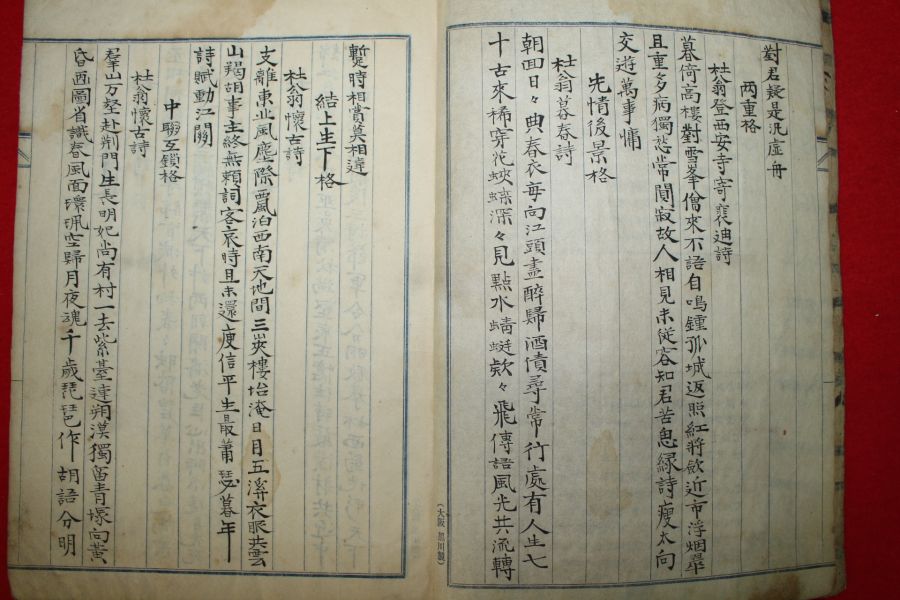 對君疑是泛虛舟
兩重格
杜翁登西安寺寄裵迪詩
暮倚高樓對雪峯僧來不語自鳴鍾孤城返照紅將歛近市浮烟翠
且重多病獨愁常闃寂故人相見未從容知君苦思緑詩瘦太向
交遊萬事慵
先情後景格
杜翁暮春詩
朝回日々典春衣每向江頭盡醉歸酒債尋常行處有人生七
十古來稀穿花蛺蝶深々見點水蜻蜓欵々飛傳語風光共流轉
蹔時相賞莫相違
結上生下格
杜翁懷古詩
支離東北風塵際飄泊西南天地間三峽樓坮淹日月五溪衣服共雲
山羯胡事主終無賴詞客哀時且未還庾信平生最蕭瑟暮年
詩賦動江關
中聯互鎖格
杜翁懷古詩
羣山万壑赴荆門生長明妃尚有村一去紫臺連朔漠獨留青塚向黃
昏畫圖省識春風面環珮空歸月夜魂千歲琵琶作胡語分明
(大阪 黒川製)